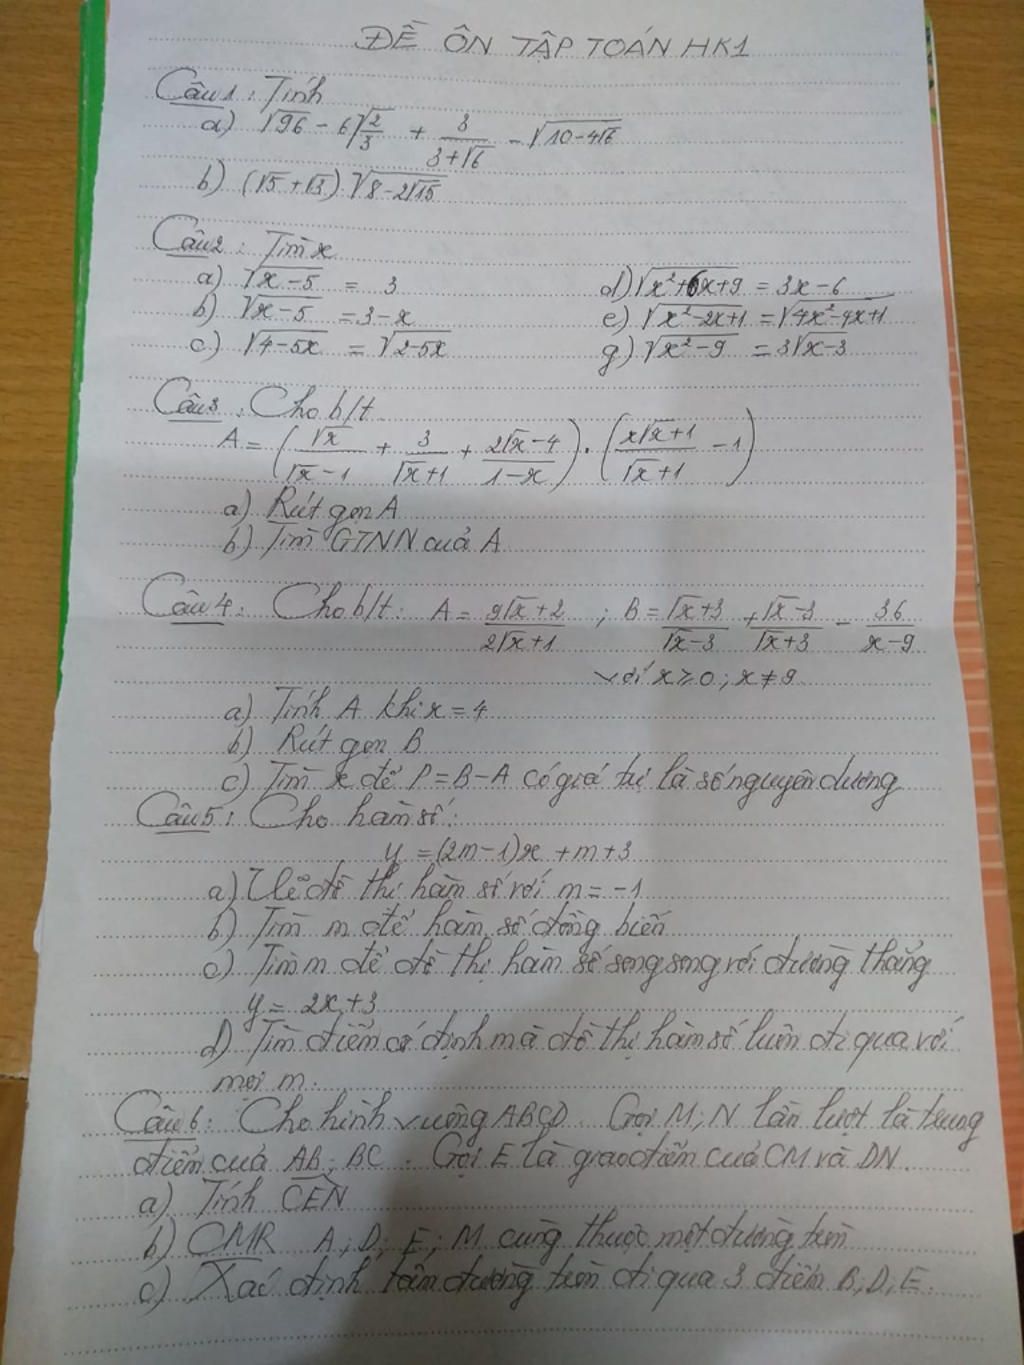 ĐỀ ÔN TẬP TOÁN HK1
Câu 1: Tính
a) √96 - 6√(2/3) + 3/(3+√6) - √(10-4√6)
b) (√5+√3).√(8-2√15)
Câu 2: Tìm x
a) √(x-5) = 3
d) √(x²+6x+9) = 3x-6
b) √(x-5) = 3-x
e) √(x²-2x+1) = √(4x²-4x+1)
c) √(4-5x) = √(2-5x)
g) √(x²-9) = 3√(x-3)
Câu 3: Cho b/t
A = (√x/(√x-1) + 3/(√x+1) + (2√x-4)/(1-x)).((x√x+1)/(√x+1) - 1)
a) Rút gọn A
b) Tìm GTNN của A
Câu 4: Cho b/t: A = (9√x+2)/(2√x+1) ; B = (√x+3)/(√x-3) + (√x-3)/(√x+3) - 36/(x-9)
với x ≥ 0; x ≠ 9
a) Tính A khi x = 4
b) Rút gọn B
c) Tìm x để P = B-A có giá trị là số nguyên dương
Câu 5: Cho hàm số:
y = (2m-1)x + m+3
a) Vẽ đồ thị hàm số với m = -1
b) Tìm m để hàm số đồng biến
c) Tìm m để đồ thị hàm số song song với đường thẳng
y = 2x+3
d) Tìm điểm cố định mà đồ thị hàm số luôn đi qua với
mọi m.
Câu 6: Cho hình vuông ABCD. Gọi M; N lần lượt là trung
điểm của AB; BC. Gọi E là giao điểm của CM và DN.
a) Tính CEN
b) CMR A; D; E; M cùng thuộc một đường tròn
c) Xác định tâm đường tròn đi qua 3 điểm B, D, E.